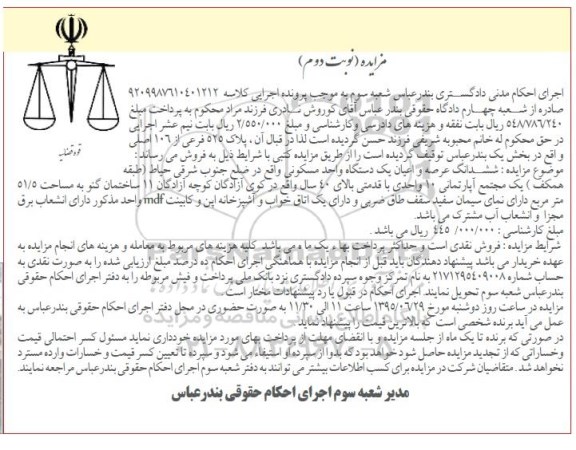 مزایده (نوبت دوم)
قوه قضاییه
اجرای احکام مدنی دادگستری بندرعباس شعبه سوم به موجب پرونده اجرایی کلاسه ۹۲۰۹۹۸۷۶۱۰۴۰۱۲۱۲
صادره از شعبه چهارم دادگاه حقوقی بندرعباس آقای کوروش نادری فرزند مراد محکوم به پرداخت مبلغ
۵۴۸/۷۸۶/۲۴۰ ریال بابت نفقه و هزینه های دادرسی وکارشناسی و مبلغ ۲/۵۵۰/۰۰۰ ریال بابت نیم عشر اجرایی
در حق محکوم له خانم محبوبه شریفی فرزند حسن گردیده است لذا در قبال آن ، پلاک ۵۲۵ فرعی از ۱۰۶ اصلی
واقع در بخش یک بندرعباس توقیف گردیده است را از طریق مزایده کتبی با شرایط ذیل به فروش می رساند :
موضوع مزایده : ششدانگ عرصه و اعیان یک دستگاه واحد مسکونی واقع در ضلع جنوب شرقی حیاط (طبقه
همکف ) یک مجتمع آپارتمانی ۱۱ واحدی با قدمتی بالای ۴۰ سال واقع در کوی آزادگان کوچه آزادگان ۱۱ ساختمان گنو به مساحت ۵۱/۵
متر مربع دارای نمای سیمان سفید سقف طاق ضربی و دارای یک اتاق خواب و آشپزخانه اپن و کابینت mdf واحد مذکور دارای انشعاب برق
مجزا و انشعاب آب مشترک می باشد.
مبلغ کارشناسی : ۴۴۵/۰۰۰/۰۰۰ ریال می باشد .
شرایط مزایده : فروش نقدی است و حداکثر پرداخت بهاء یک ماه می باشد. کلیه هزینه های مربوط به معامله و هزینه های انجام مزایده به
عهده خریدار می باشد پیشنهاد دهندگان باید قبل از انجام مزایده با هماهنگی اجرای احکام ده درصد مبلغ ارزیابی شده را به صورت نقدی به
حساب شماره ۲۱۷۱۲۹۵۴۰۹۰۰۸ به نام تمرکز وجوه سپرده دادگستری نزد بانک ملی پرداخت و فیش مربوطه را به دفتر اجرای احکام حقوقی
بندرعباس شعبه سوم تحویل نمایند اجرای احکام در قبول یا رد پیشنهادات مختار است .
مزایده در ساعت روز دوشنبه مورخ ۱۳۹۵/۰۶/۲۹ ساعت ۱۱ الی ۱۱/۳۰ به صورت حضوری در محل دفتر اجرای احکام حقوقی بندرعباس به
عمل می آید برنده شخصی است که بالاترین قیمت را پیشنهاد نماید
در صورتی که برنده تا یک ماه از جلسه مزایده و با انقضای مهلت از پرداخت بهای مورد مزایده خودداری نماید مسئول کسر احتمالی قیمت
وخساراتی که از تجدید مزایده حاصل شود خواهد بود که بدوا از سپرده او استیفاء می شود و سپرده تا تعیین کسر قیمت و خسارات وارده مسترد
نخواهد شد . متقاضیان شرکت در مزایده برای کسب اطلاعات بیشتر می توانند به دفتر شعبه سوم اجرای احکام حقوقی بندرعباس مراجعه نمایند.
مدیر شعبه سوم اجرای احکام حقوقی بندرعباس